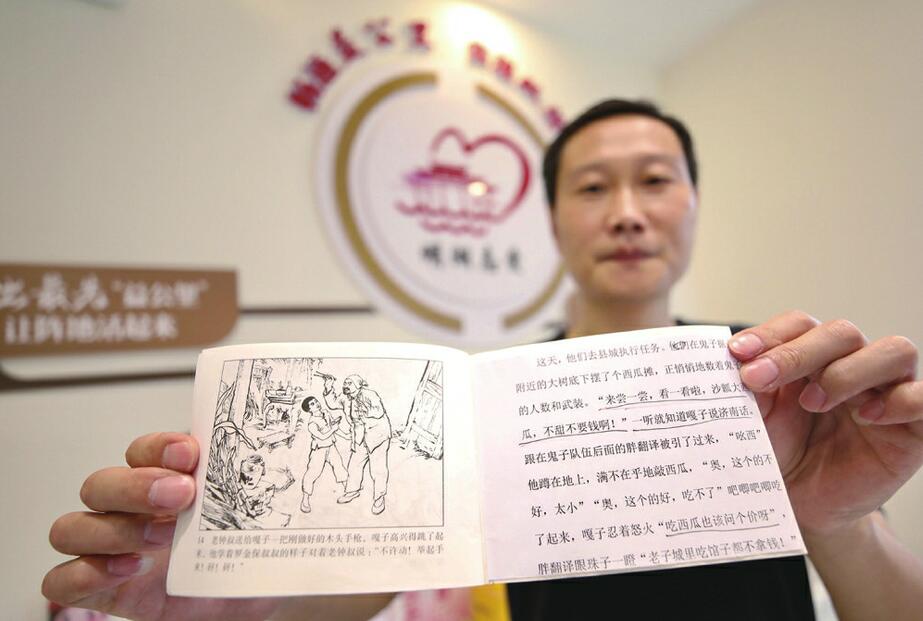 "益公里"
让阵地活起来
14 老钟叔送给嘎子一把刚做好的木头手枪。嘎子高兴得跳了起
来。他学着罗金保叔叔的样子对着老钟叔说："不许动！举起手
来！砰！砰！"
这天，他们去县城执行任务。他们在鬼子
附近的大树底下摆了个西瓜摊，正悄悄地数着鬼子
的人数和武装。"来尝一尝，看一看啦，沙瓤大
瓜，不甜不要钱啊！"一听就知道嘎子说济南话。
跟在鬼子队伍后面的胖翻译被引了过来，"吆西"
他蹲在地上，满不在乎地敲西瓜，"奥，这个的不
好，太小""奥，这个的好，吃不了"吧唧吧唧吃
了起来，嘎子忍着怒火"吃西瓜也该问个价呀"
胖翻译眼珠子一瞪"老子城里吃馆子都不拿钱！"